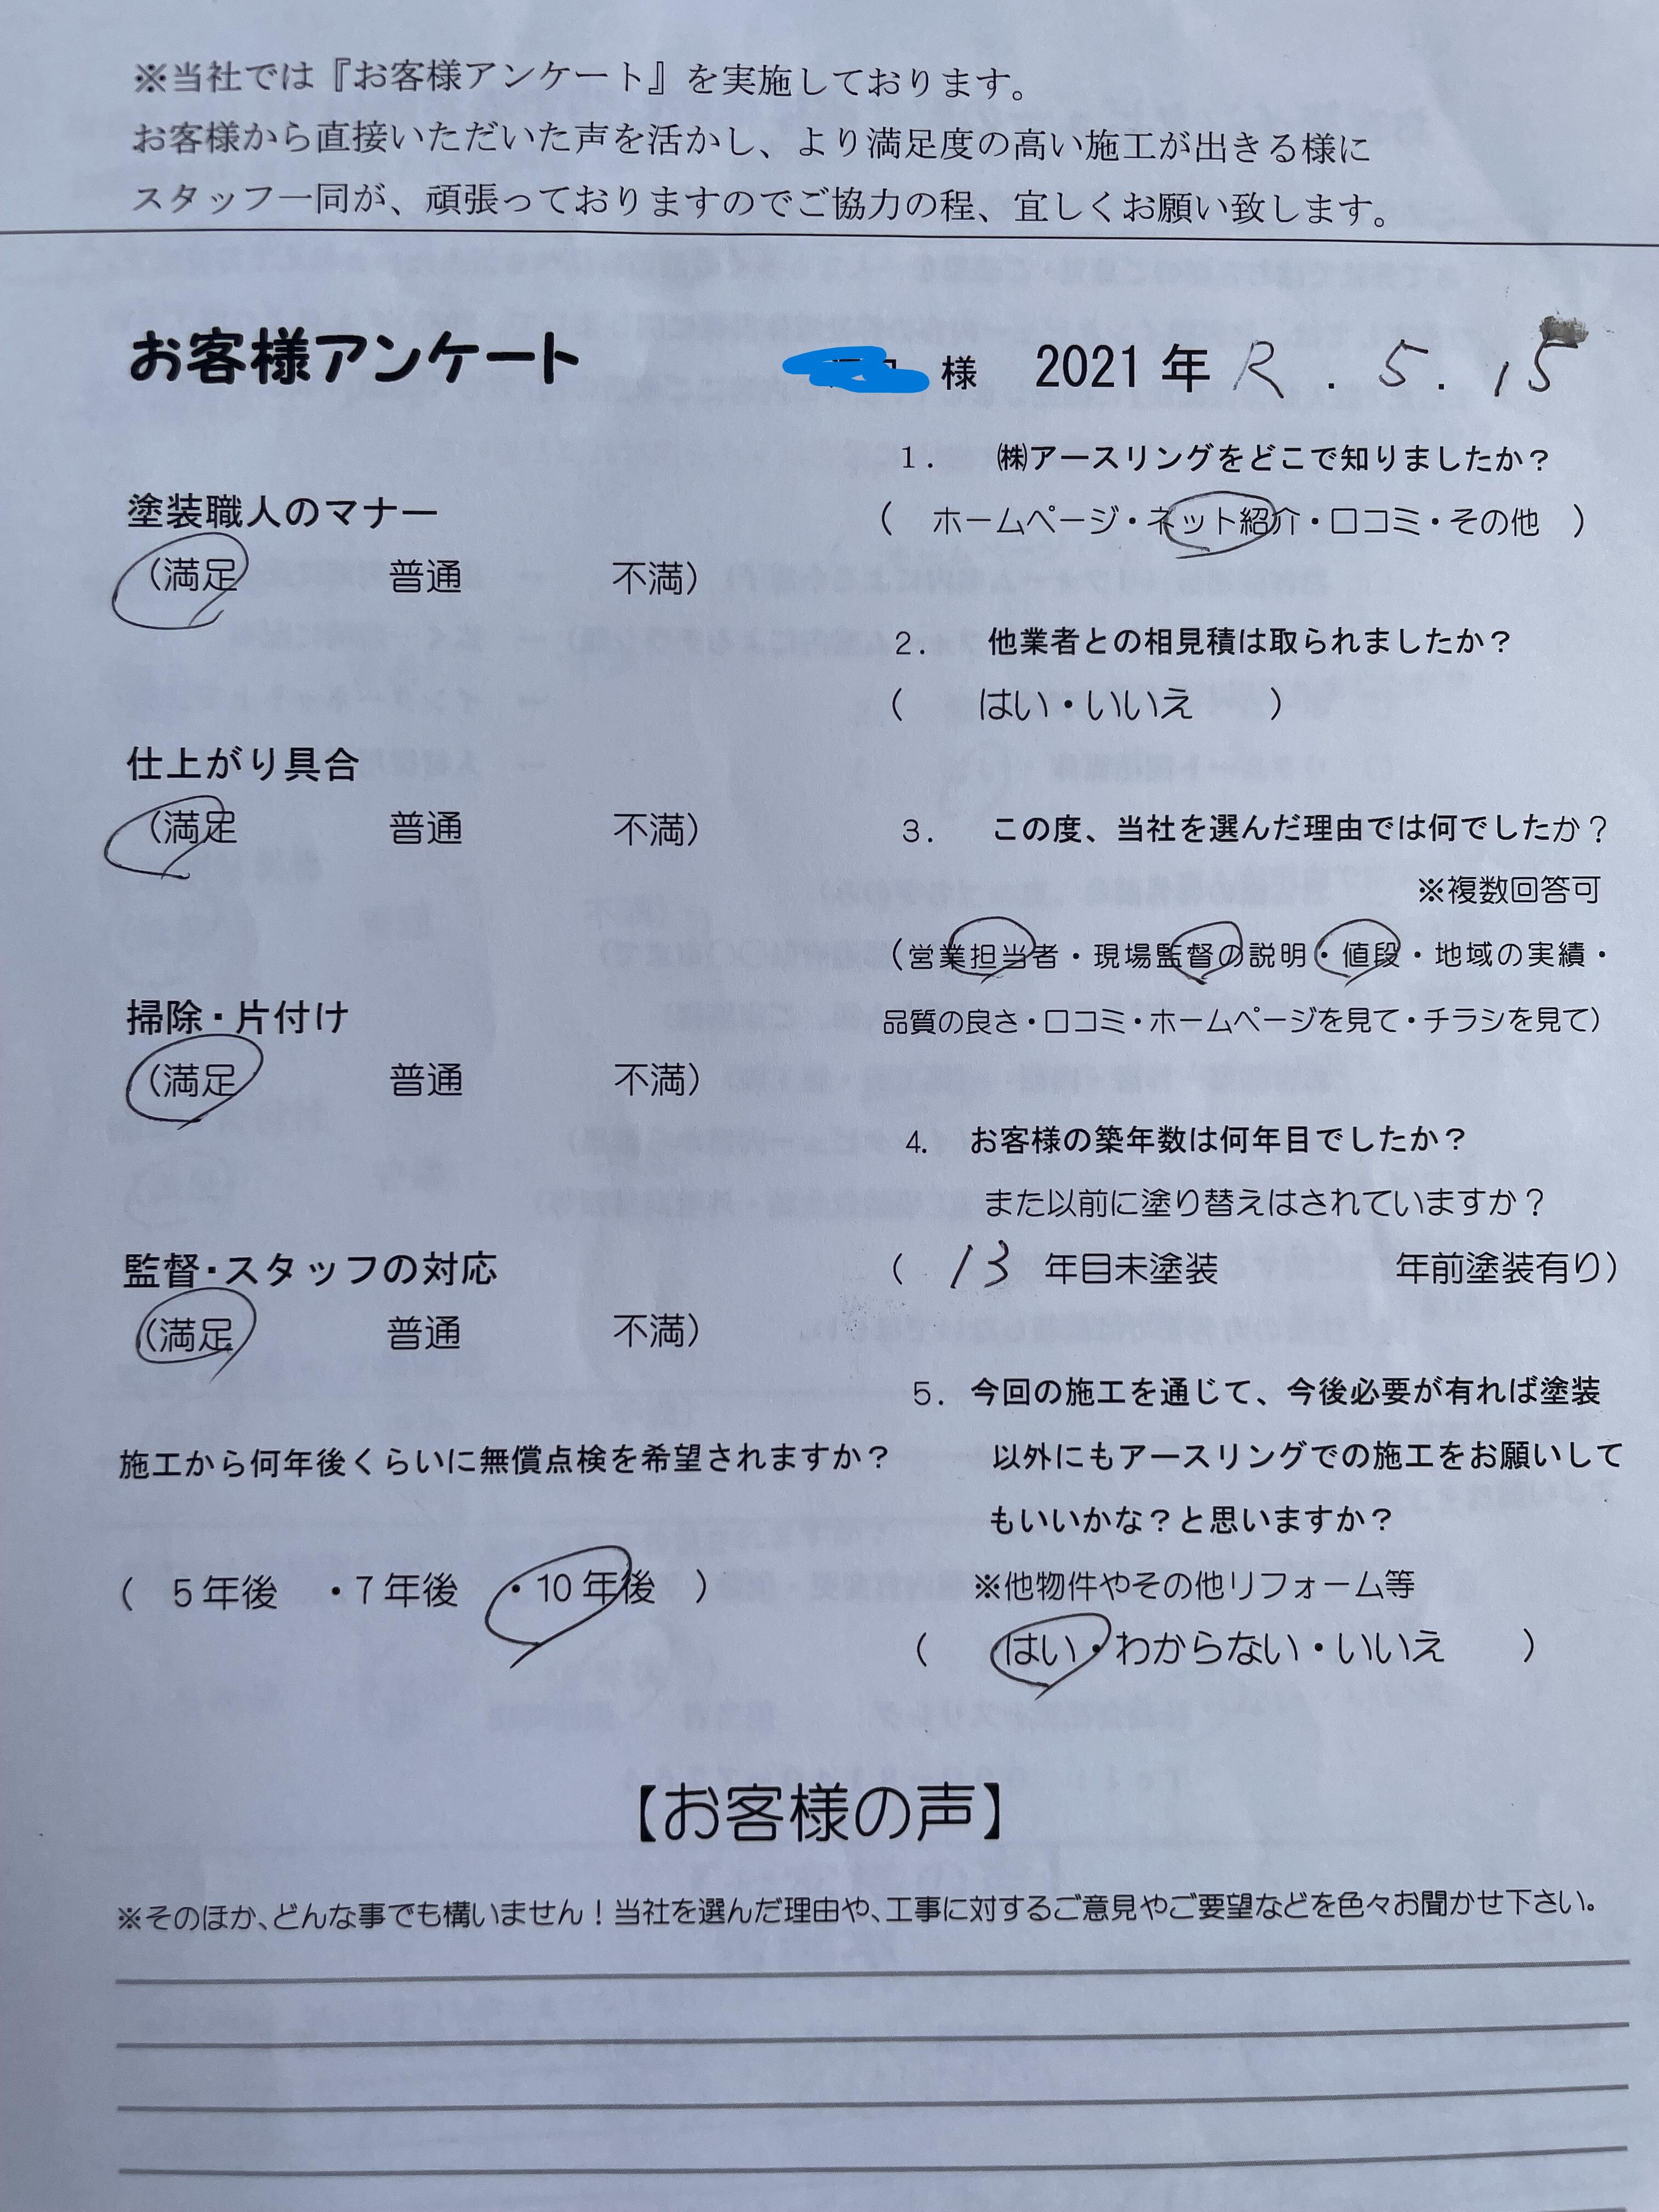 ※当社では『お客様アンケート』を実施しております。
お客様から直接いただいた声を活かし、より満足度の高い施工が出きる様に
スタッフ一同が、頑張っておりますのでご協力の程、宜しくお願い致します。
お客様アンケート
様 2021年 R . 5 . 15
塗装職人のマナー
(満足 普通 不満)
仕上がり具合
(満足 普通 不満)
掃除・片付け
(満足 普通 不満)
監督・スタッフの対応
(満足 普通 不満)
施工から何年後くらいに無償点検を希望されますか？
( 5年後 ・7年後 ・10年後 )
1. ㈱アースリングをどこで知りましたか？
( ホームページ・ネット紹介・口コミ・その他 )
2. 他業者との相見積は取られましたか？
( はい・いいえ )
3. この度、当社を選んだ理由では何でしたか？
※複数回答可
(営業担当者・現場監督の説明・値段・地域の実績・
品質の良さ・口コミ・ホームページを見て・チラシを見て)
4. お客様の築年数は何年目でしたか？
また以前に塗り替えはされていますか？
( 13 年目未塗装 年前塗装有り)
5. 今回の施工を通じて、今後必要が有れば塗装
以外にもアースリングでの施工をお願いして
もいいかな？と思いますか？
※他物件やその他リフォーム等
( はい・わからない・いいえ )
【お客様の声】
※そのほか、どんな事でも構いません！当社を選んだ理由や、工事に対するご意見やご要望などを色々お聞かせ下さい。